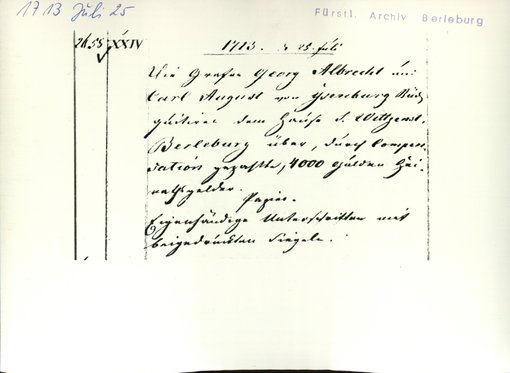 1713 Juli 25
Fürstl. Archiv Berleburg
2655 XXIV
1713. 25. Juli
Die Grafen Georg Albrecht und
Carl August von Ysenburg Büd.
quitiren dem Hause S. Wittgenst.
Berleburg über, durch Compen-
sation gezahlte, 4000 Gulden Hei-
rathsgelder.
Papier.
Eigenhändige Unterschriften mit
beigedrückten Siegeln.